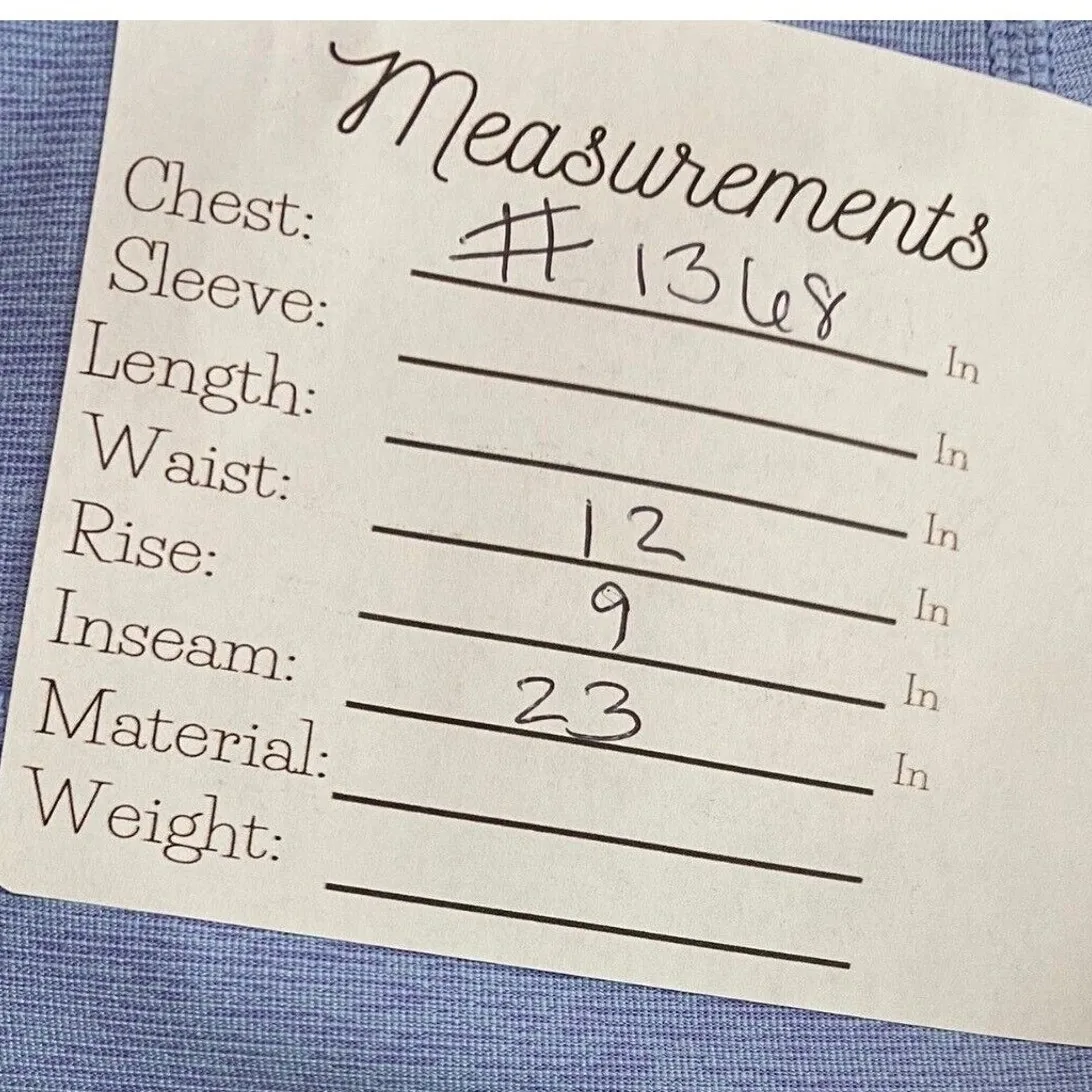 Measurements
Chest: # 1368 In
Sleeve: In
Length: In
Waist: 12 In
Rise: 9 In
Inseam: 23 In
Material:
Weight: